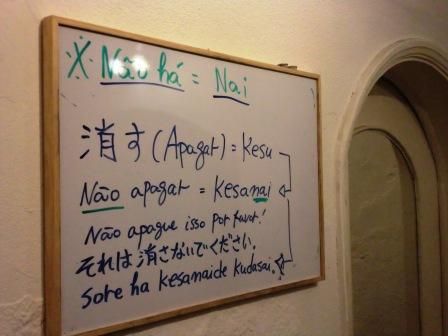 ※ Não há = Nai
消す (Apagar) = Kesu
Não apagar = Kesanai
Não apague isso por favor!
それは消さないでください。
Sore ha kesanaide kudasai.